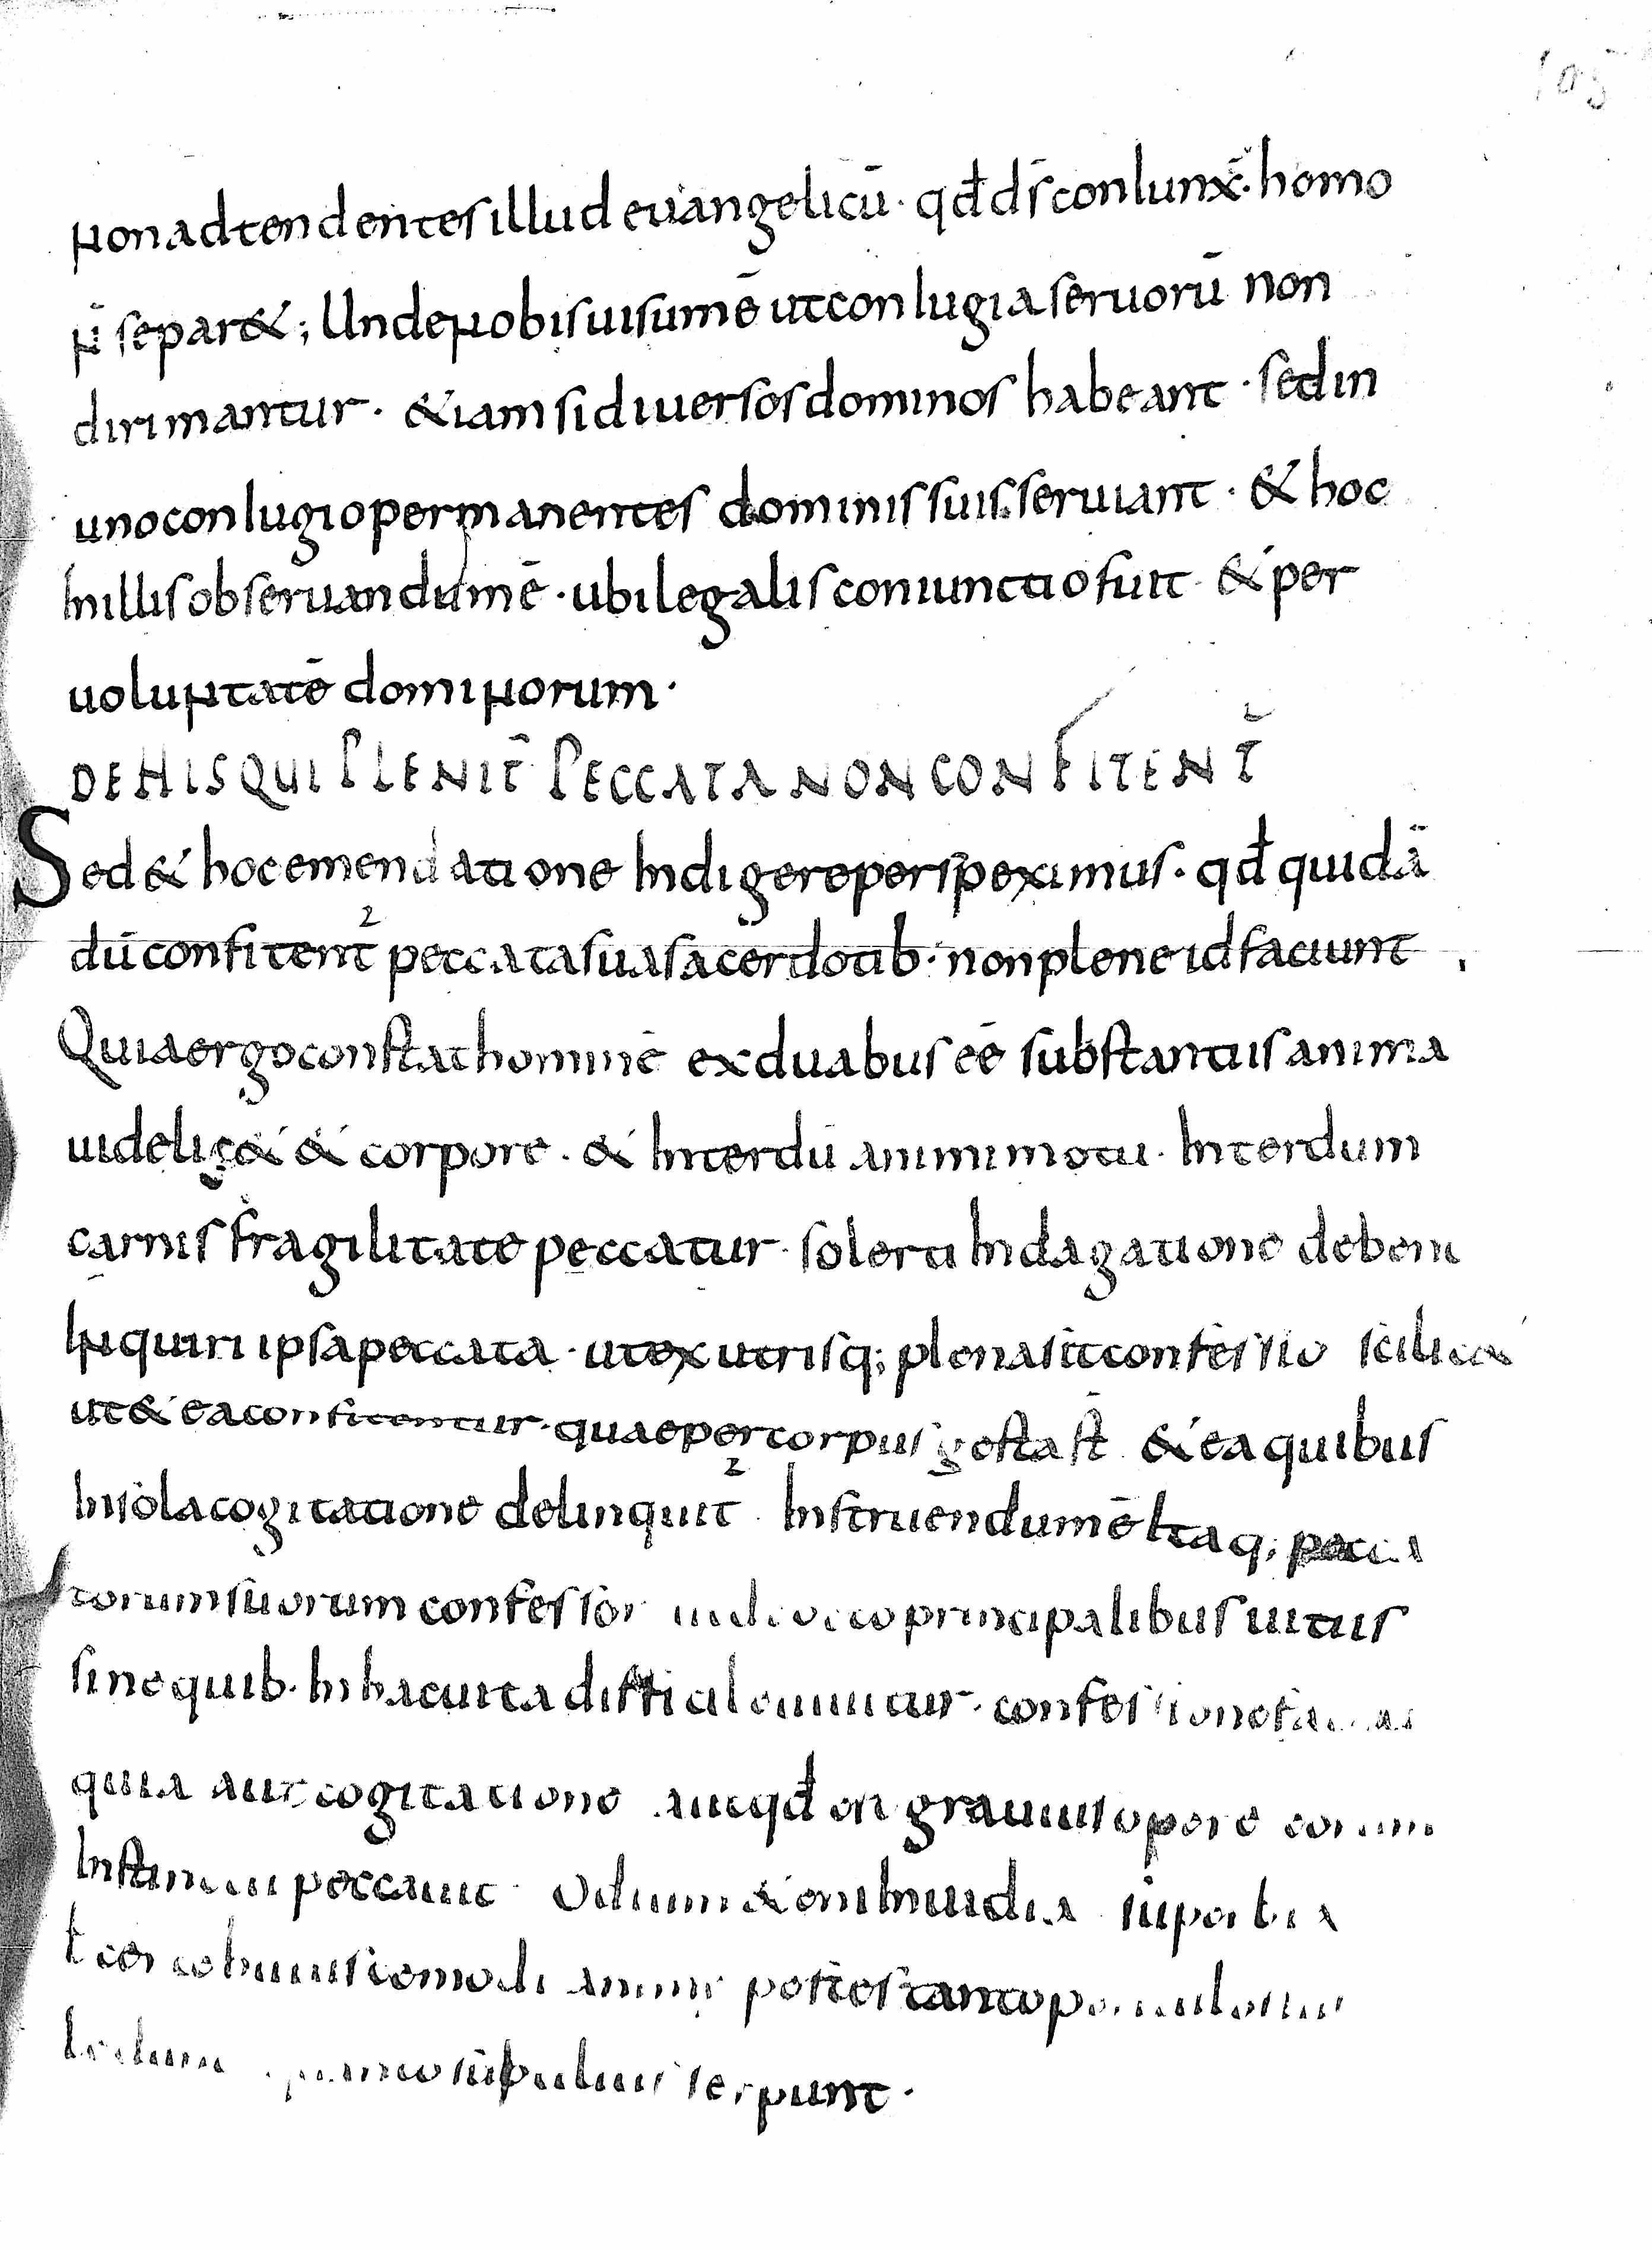 105
non adtendentes illud euangelicū · qđ dс̄ coniunx̄ · homo
n̄ separ& ; Unde nobis uisum ē ut coniugia seruorū non
dirimantur · &iam si diuersos dominos habeant · sed in
uno coniugio permanentes dominis suis seruiant · & hoc
In illis obseruandum ē · ubi legalis coniunctio fuit · & per
uoluntatē dominorum ·
DE HIS QUI PLENIT̄ PECCATA NON CONFITENT̄
Sed & hoc emendatione Indigere perspeximus · qđ quidā
dū confitent̄ peccata sua sacerdotib · non plene id faciunt
Quia ergo constat hominē ex duabus eē substantiis anima
uidelic& & corpore · & Interdū animi motu · Interdum
carnis fragilitate peccatur · solerti Indagatione debent
Inquiri ipsa peccata · ut ex utrisq; plena sit confessio scilic&
ut & ea confitentur · quae per corpus gesta st̄ & ea quibus
In sola cogitatione delinquit̄ Instruendum ē Itaq; pecca
torum suorum confessor principalibus uitiis
sine quib · In hac uita difficile uiuitur · confessionē
quia aut cogitatione aut qđ ē grauius opere
peccauit Odium &enim Inuidia superbia
animę pestes tanto
serpunt ·